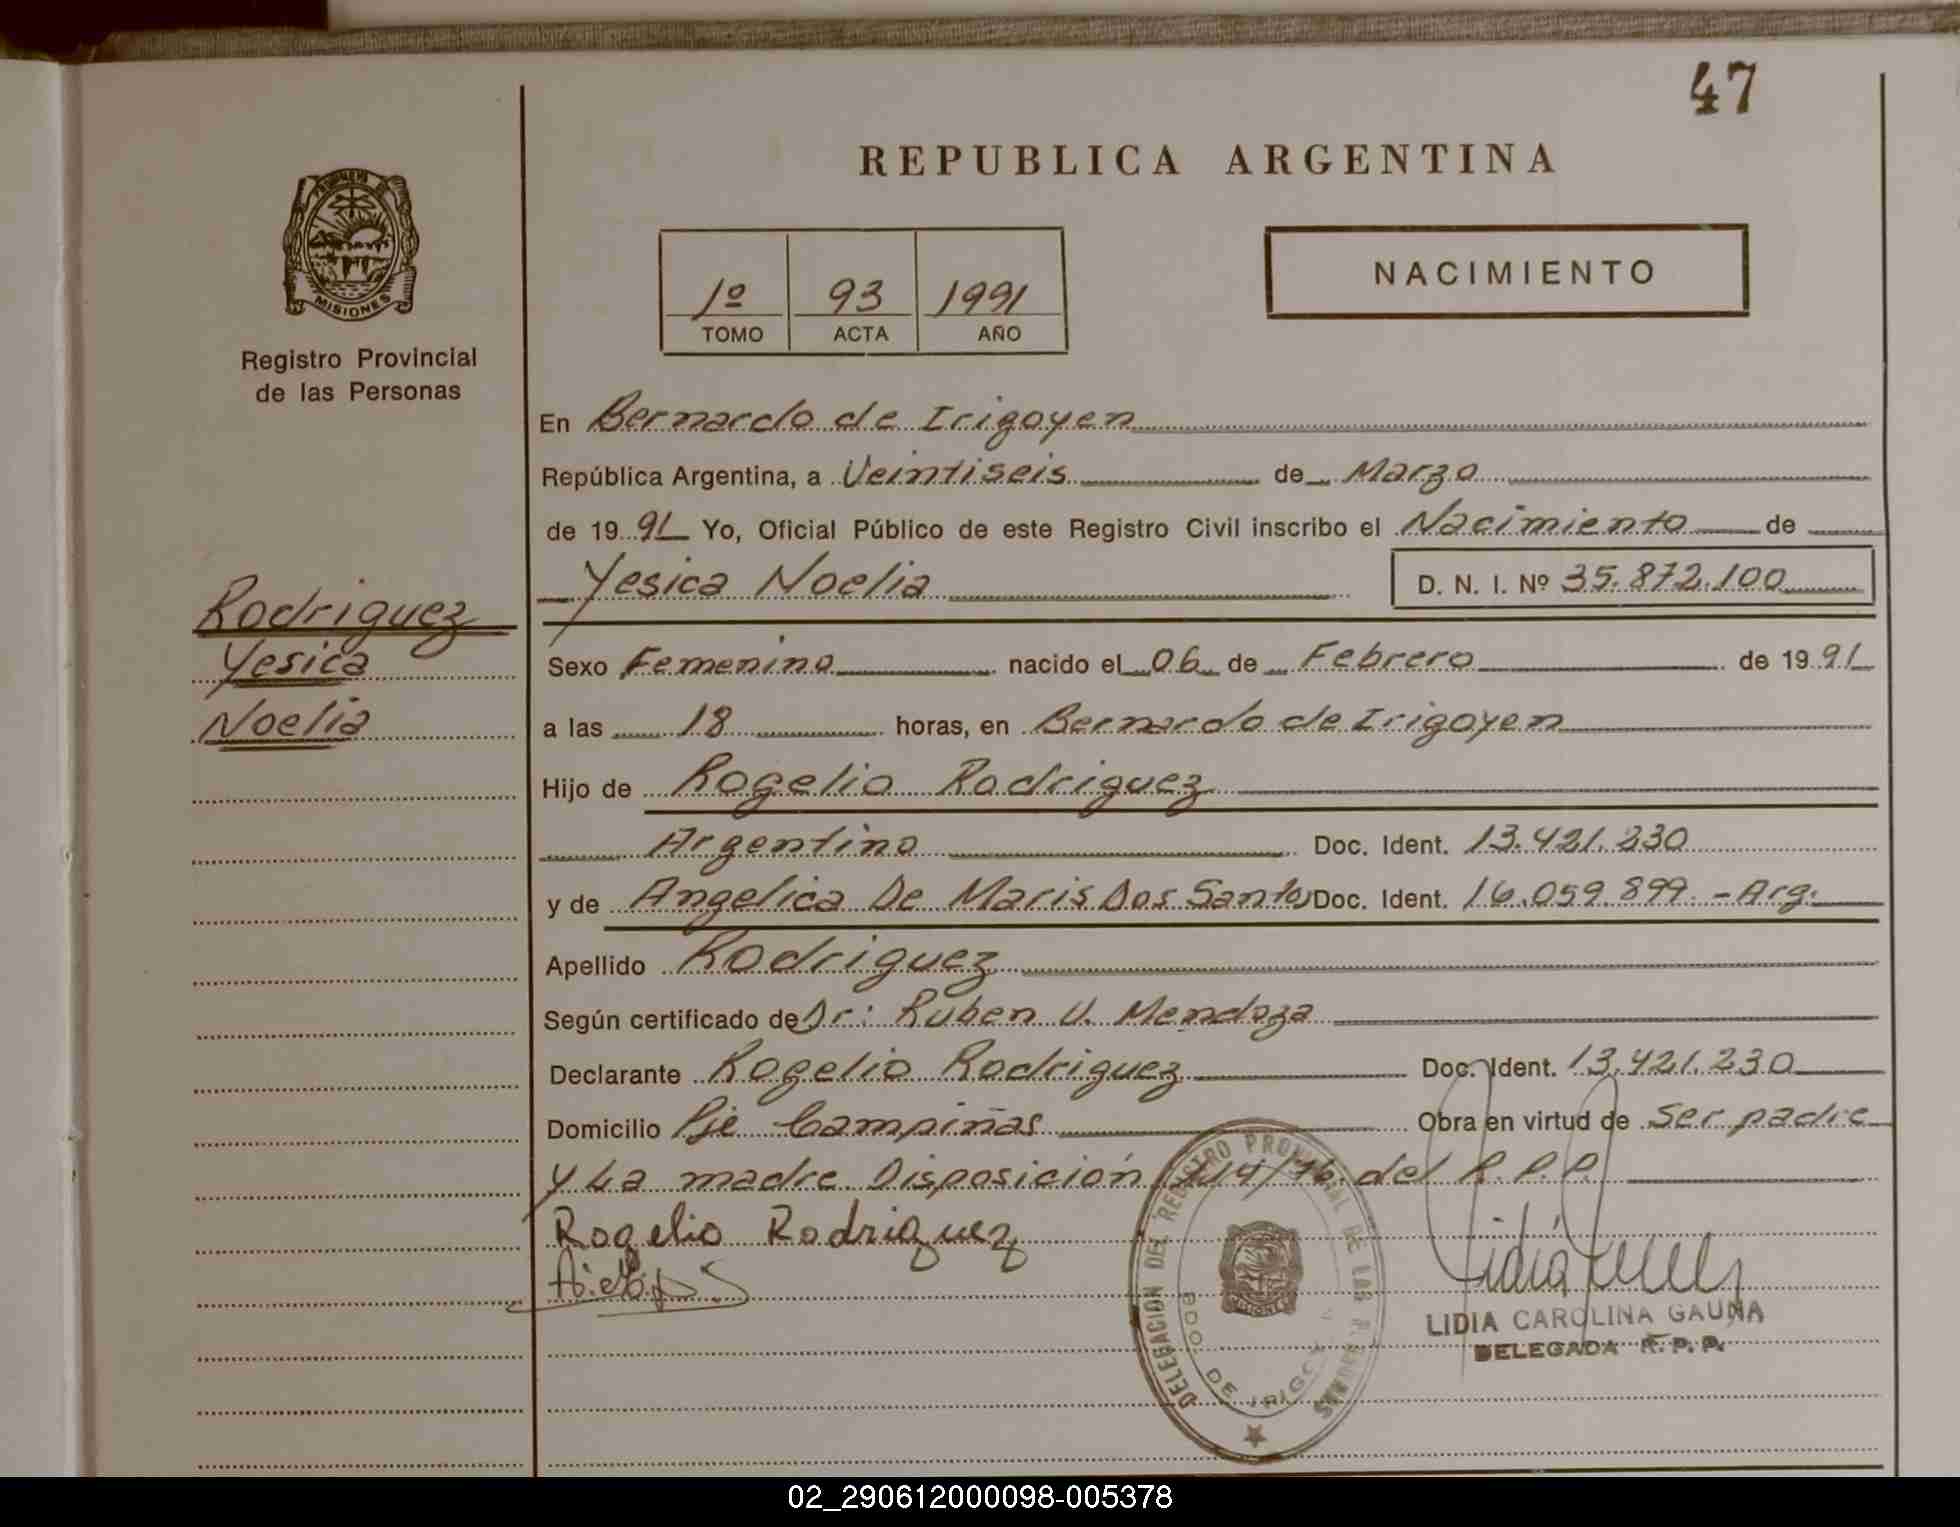 47
REPUBLICA ARGENTINA
MISIONES
Registro Provincial
de las Personas
1º 93 1991
TOMO ACTA AÑO
NACIMIENTO
En Bernardo de Irigoyen
República Argentina, a Veintiseis de Marzo
de 1991 Yo, Oficial Público de este Registro Civil inscribo el Nacimiento de
Yesica Noelia D. N. I. Nº 35.872.100
Rodriguez
Yesica
Noelia
Sexo Femenino nacido el 06 de Febrero de 1991
a las 18 horas, en Bernardo de Irigoyen
Hijo de Rogelio Rodriguez
Argentino Doc. Ident. 13.421.230
y de Angelica De Maris Dos Santos Doc. Ident. 16.059.899.-Arg.
Apellido Rodriguez
Según certificado de Dr: Ruben V. Mendoza
Declarante Rogelio Rodriguez Doc. Ident. 13.421.230
Domicilio Pje Campiñas Obra en virtud de Ser padre
y La madre Disposición 114/76 del R.P.P.
Rogelio Rodriguez
DELEGACION DEL REGISTRO PROVINCIAL DE LAS PERSONAS
BDO. DE IRIGOYEN
MISIONES
LIDIA CAROLINA GAUNA
DELEGADA R.P.P.
02_290612000098-005378